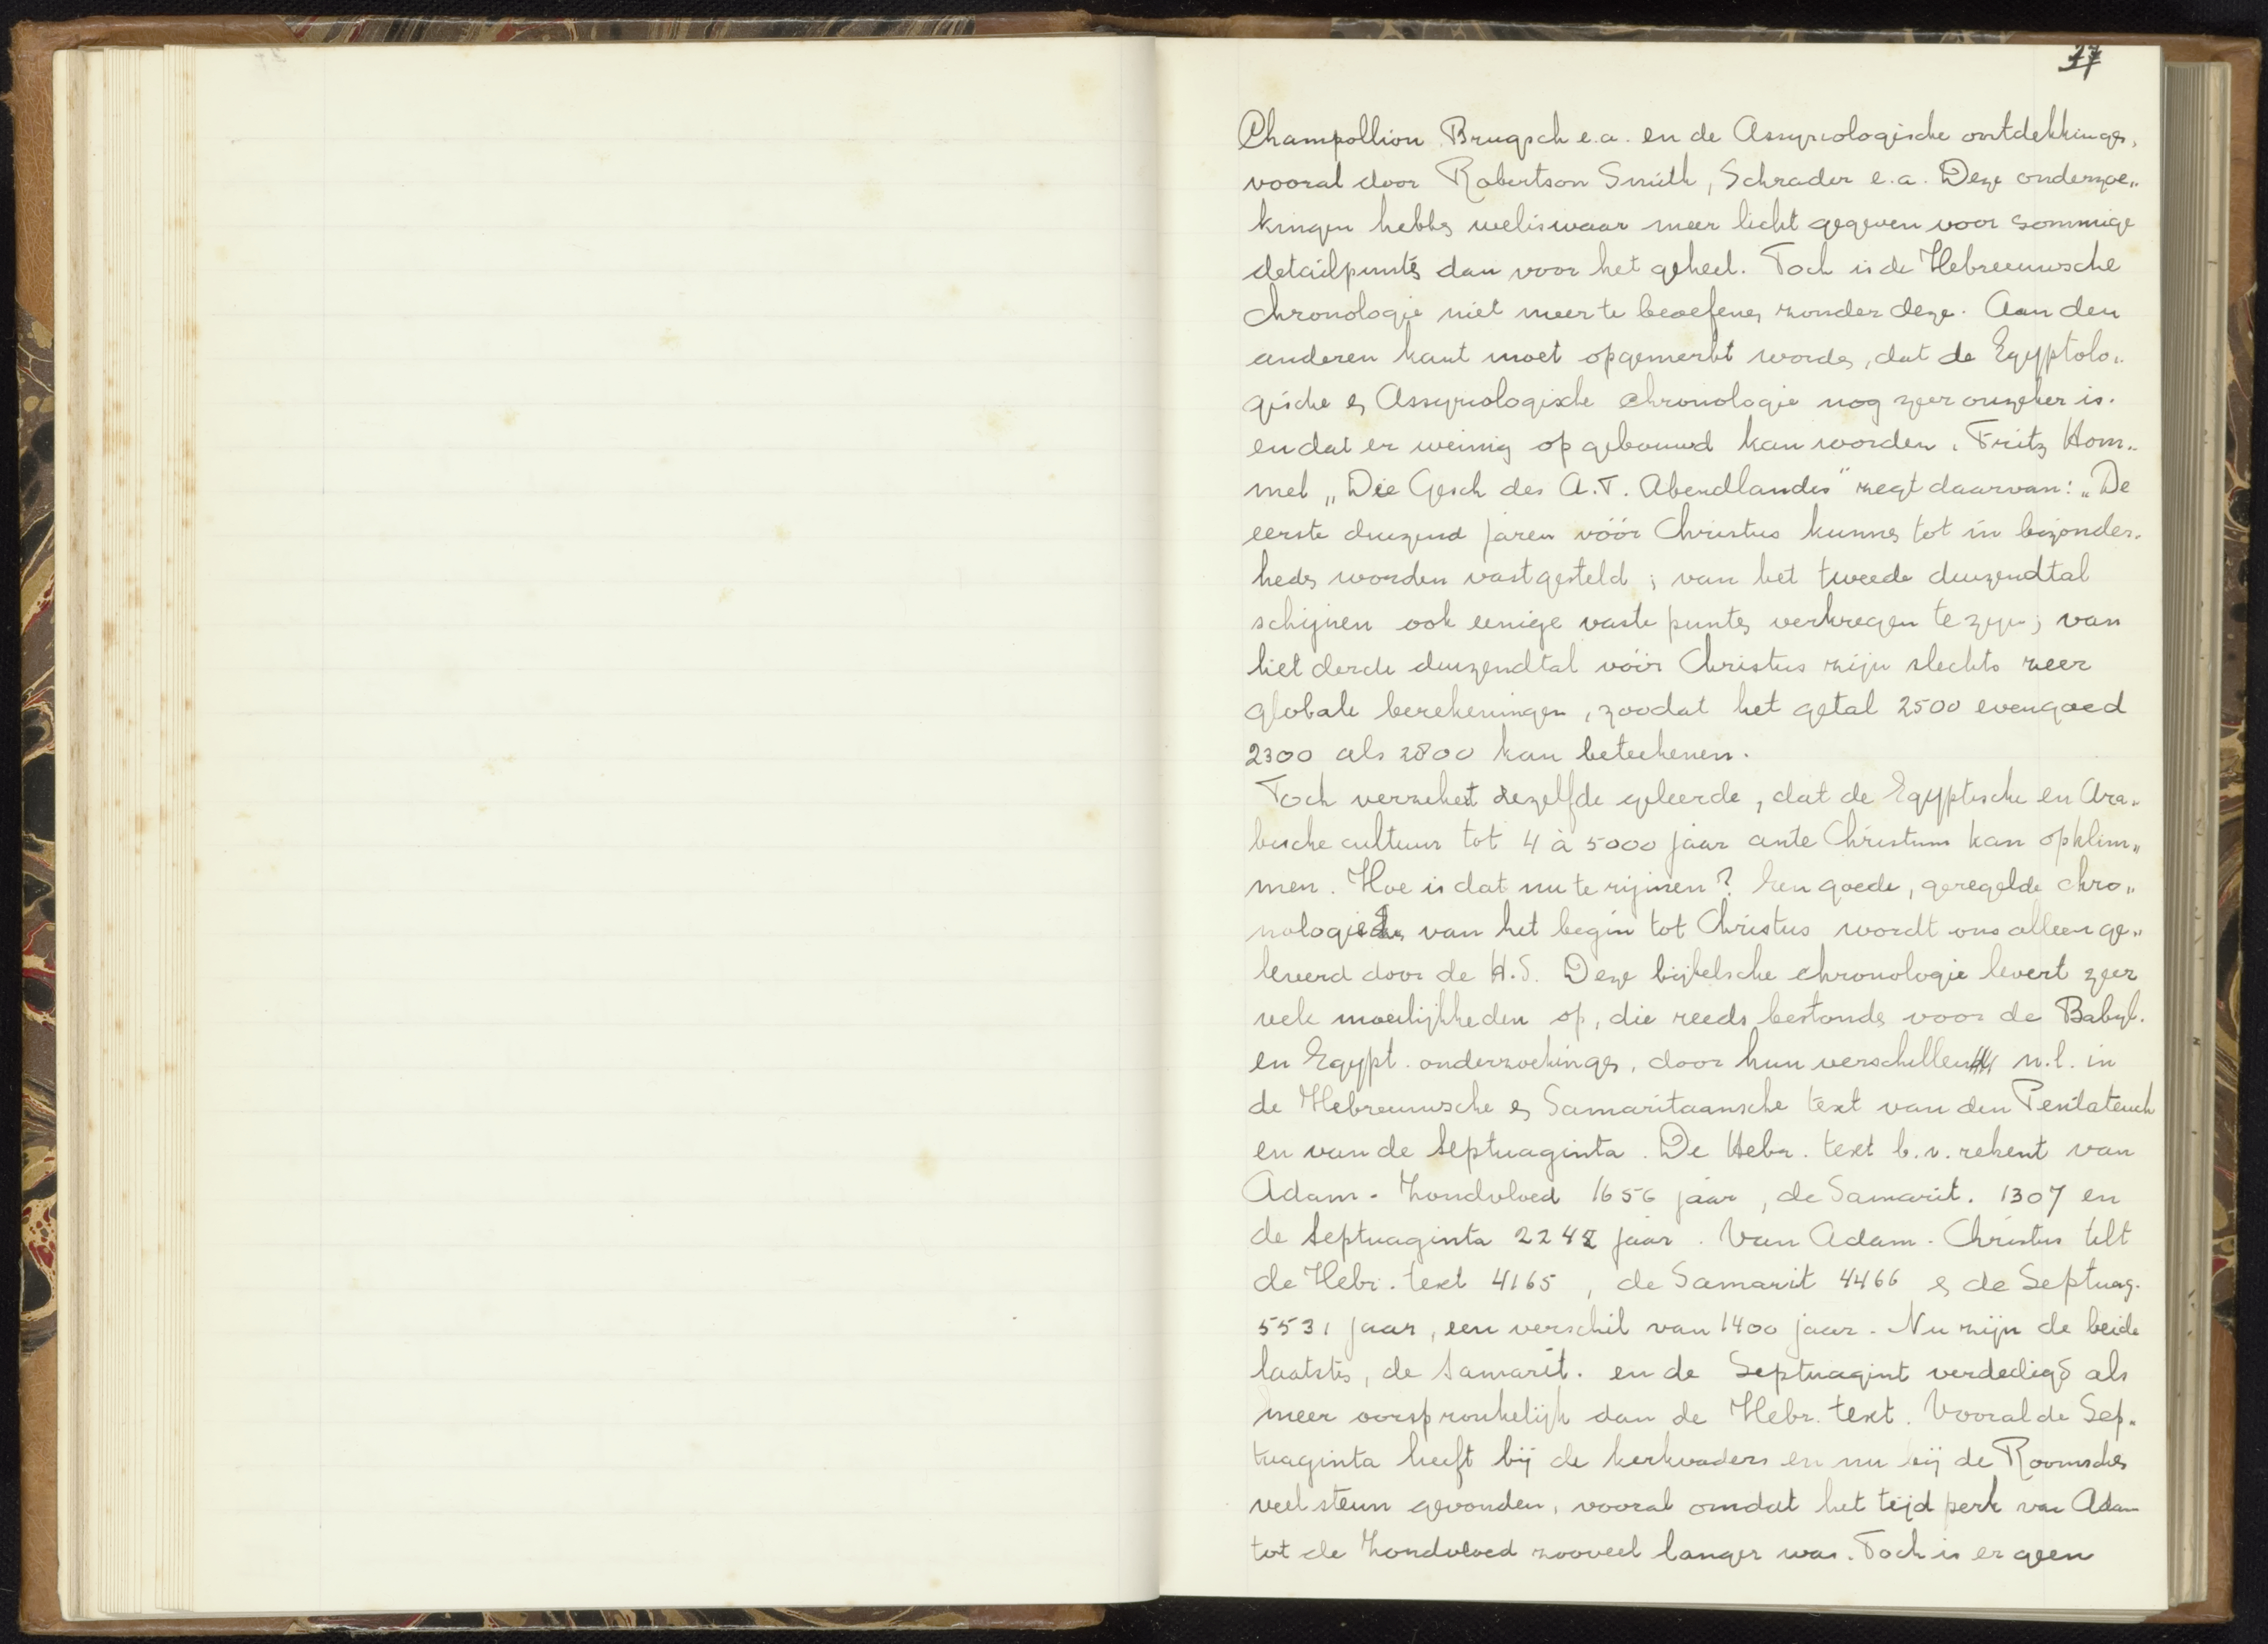 37
Champollion Brugsch e.a. en de Assyriologische ontdekkingen,
vooral door Robertson Smith, Schrader e.a. Deze onderzoe„
kingen hebben weliswaar meer licht gegeven voor sommige
detailpunten dan voor het geheel. Toch is de Hebreeuwsche
chronologie niet meer te beoefenen zonder deze. Aan den
anderen kant moet opgemerkt worden, dat de Egyptolo„
gische en Assyriologische chronologie nog zeer onzeker is.
en dat er weinig op gebouwd kan worden. Fritz Hom„
mel „Die Gesch des A.T. Abendlandes" zegt daarvan: „De
eerste duizend jaren vóór Christus kunnen tot in bijzonder„
heden worden vastgesteld; van het tweede duizendtal
schijnen ook eenige vaste punten verkregen te zijn; van
het derde duizendtal vóór Christus zijn slechts zeer
globale berekeningen, zoodat het getal 2500 evengoed
2300 als 2800 kan beteekenen.
Toch verzekert dezelfde geleerde, dat de Egyptische en Ara„
bische cultuur tot 4 à 5000 jaar ante Christum kan opklim„
men. Hoe is dat nu te rijmen? Een goede, geregelde chro„
nologie van het begin tot Christus wordt ons alleen ge„
leverd door de H.S. Deze bijbelsche chronologie levert zeer
vele moeilijkheden op, die reeds bestonden voor de Babyl.
en Egypt. onderzoekingen, door hun verschillen n.l. in
de Hebreeuwsche en Samaritaansche text van den Pentateuch
en van de Septuaginta. De Hebr. text b.v. rekent van
Adam - Zondvloed 1656 jaar, de Samarit. 1307 en
de Septuaginta 2242 jaar. Van Adam - Christus telt
de Hebr. text 4165, de Samarit 4466 en de Septuag.
5531 jaar, een verschil van 1400 jaar. Nu zijn de beide
laatsten, de Samarit. en de Septuagint verdedigd als
meer oorspronkelijk dan de Hebr. text. Vooral de Sep„
tuaginta heeft bij de kerkvaders en nu bij de Roomschen
veel steun gevonden, vooral omdat het tijdperk van Adam
tot de Zondvloed zooveel langer was. Toch is er geen